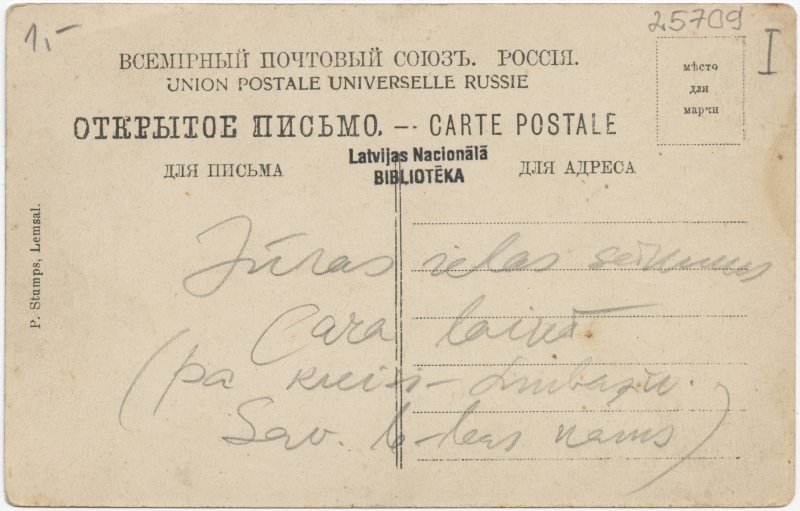 1,-
25709
I
ВСЕМІРНЫЙ ПОЧТОВЫЙ СОЮЗЪ. РОССІЯ.
UNION POSTALE UNIVERSELLE RUSSIE
мѣсто
для
марки
ОТКРЫТОЕ ПИСЬМО. — CARTE POSTALE
Latvijas Nacionālā
BIBLIOTĒKA
ДЛЯ ПИСЬМА
ДЛЯ АДРЕСА
P. Stumps, Lemsal.
Jūras ielas
Cara laikā
(pa kreisi - Limbažu
Sav. b-bas nams)